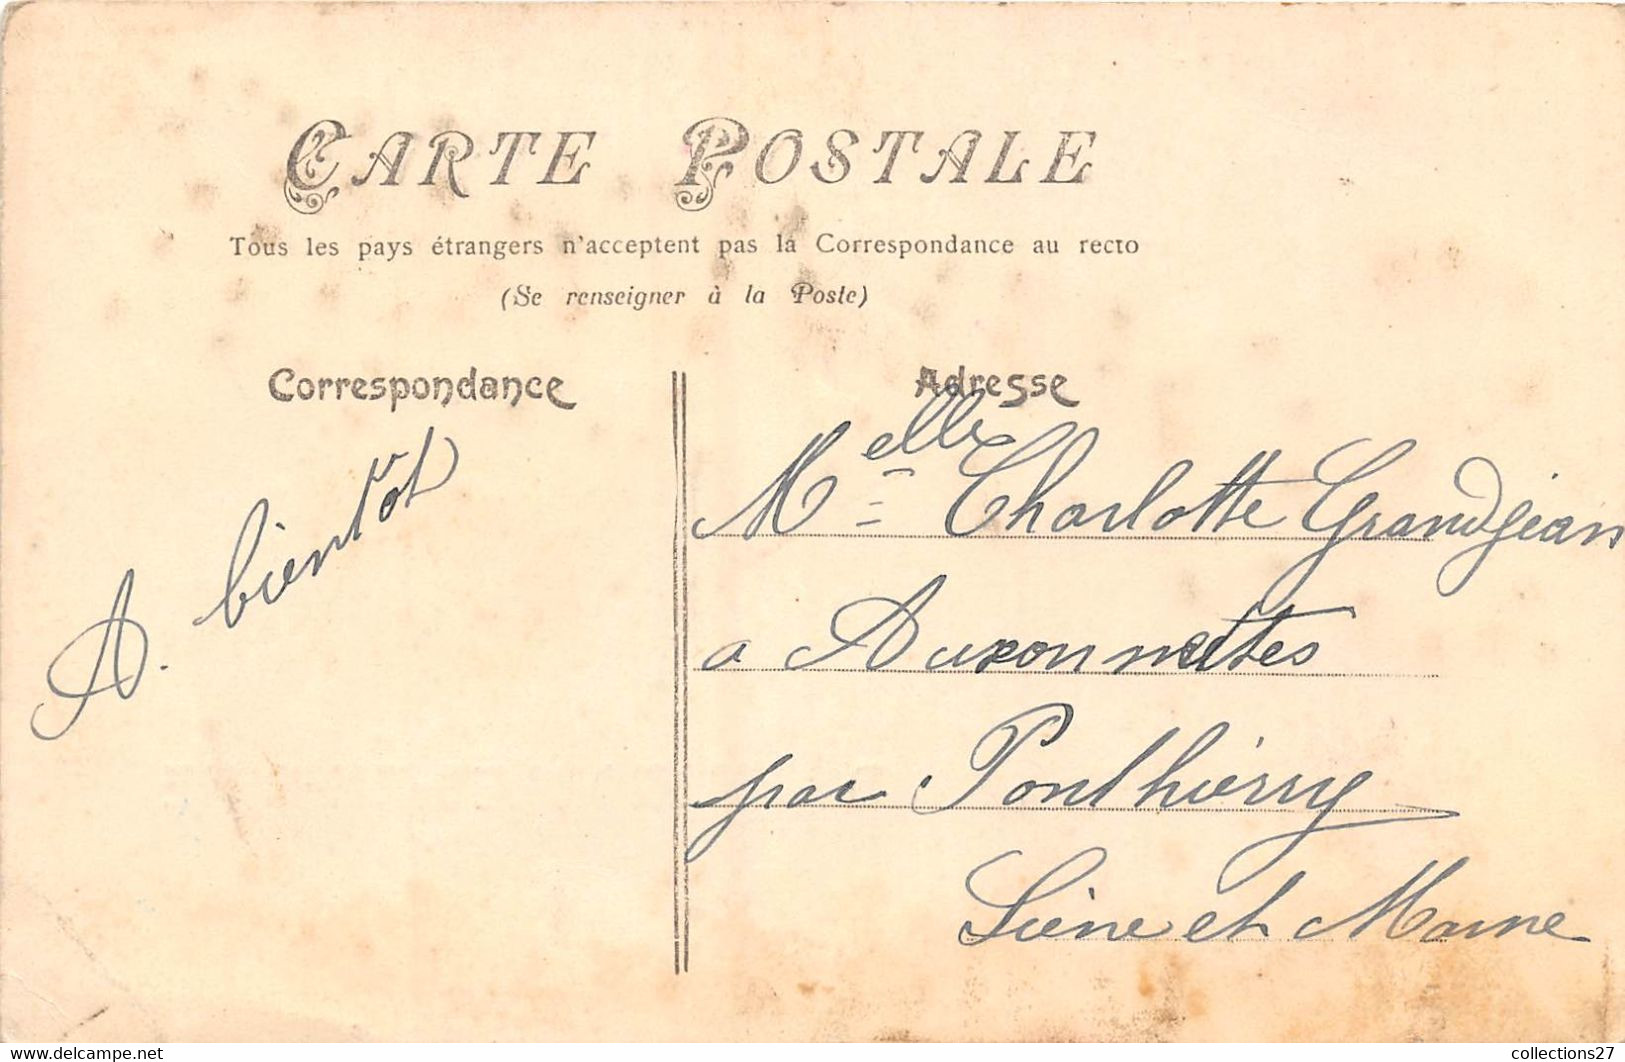 CARTE POSTALE
Tous les pays étrangers n'acceptent pas la Correspondance au recto
(Se renseigner à la Poste)
Correspondance
Adresse
A. bientôt
Melle Charlotte Grandjean
a Auxonnettes
par Ponthierry
Seine et Marne
collections27